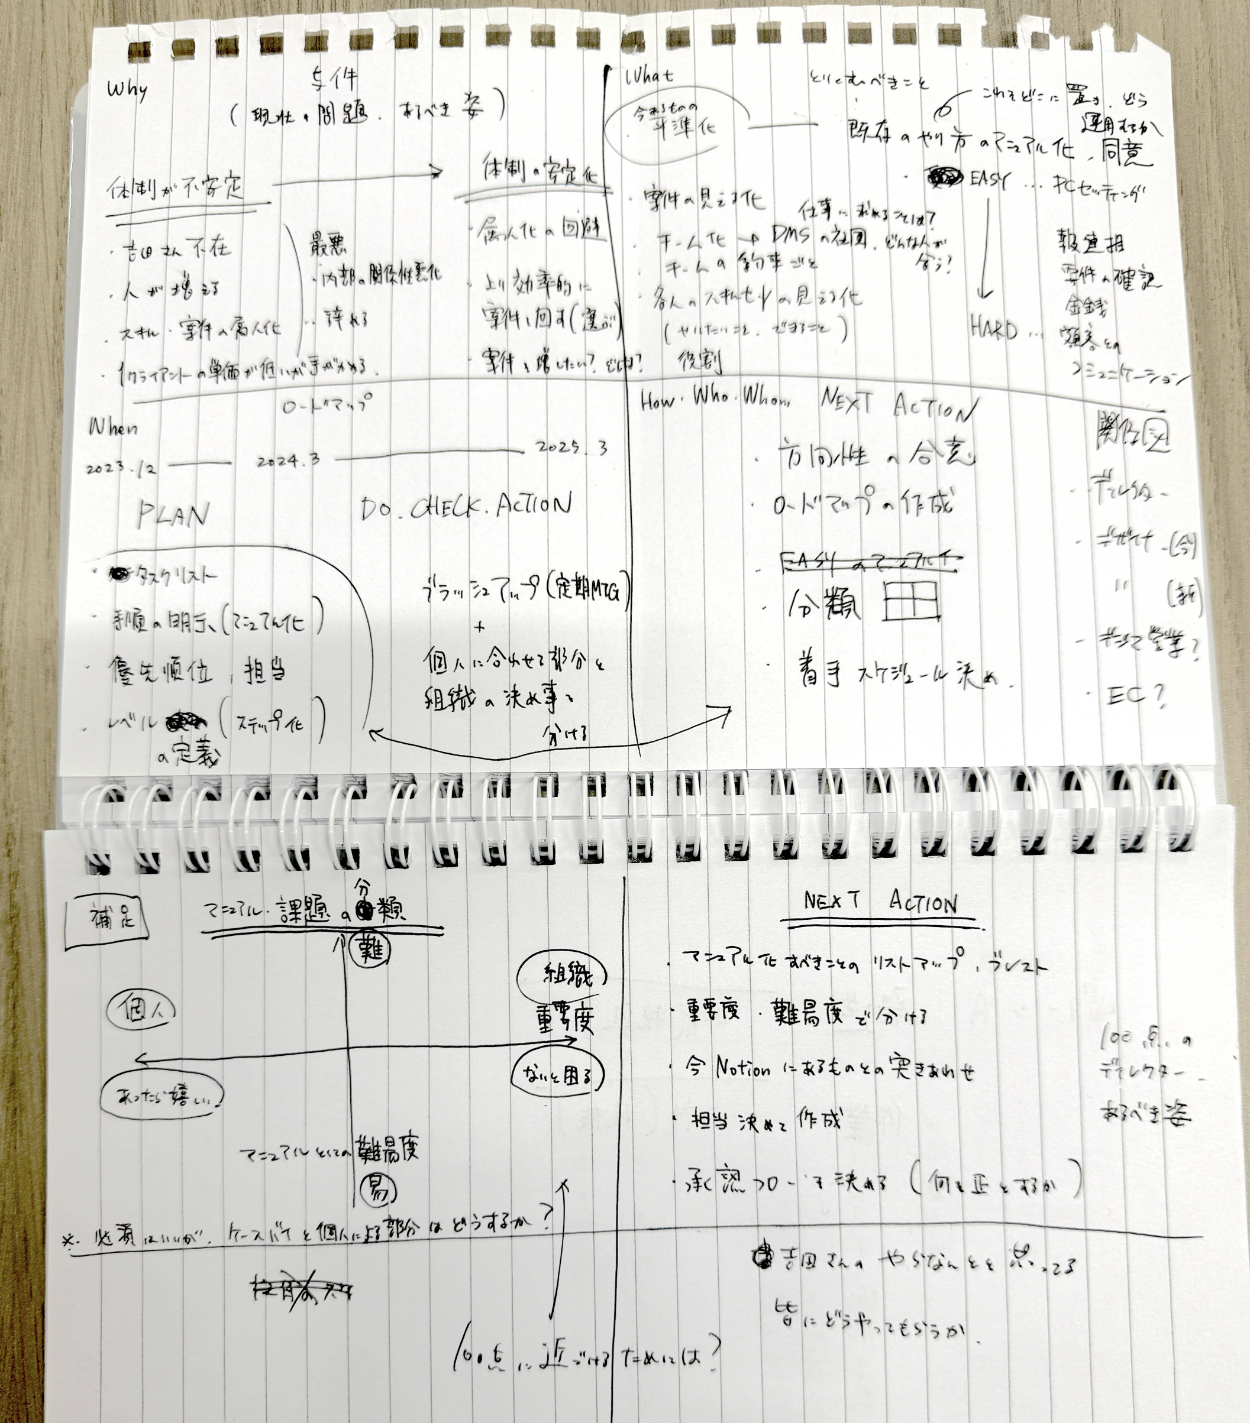 Why
与件
(現状の問題、あるべき姿)
体制が不安定
・吉田さん不在
・人が増える
・スキル・案件の属人化
・1クライアントの単価が低いが手がかかる。
最悪
・内部の関係性悪化
・辞める
体制の安定化
・属人化の回避
・より効率的に
案件を回す(選ぶ)
・案件を増したい?
What
とりくむべきこと
今あるものの
平準化
既存のやり方のマニュアル化、同意
これをどこに置き、どう
運用するか
・EASY … PCセッティング
報連相
案件の確認
金銭
HARD … 顧客との
コミュニケーション
・案件の見える化
・チーム化 → DMSの社園、どんな人が
仕事に求めることは?
合う?
・チームの約束ごと
・各人のスキルセットの見える化
(やりたいこと、できること)
役割
When
ロードマップ
2023.12
2024.3
2025.3
PLAN
DO. CHECK. ACTION
・タスクリスト
・手順の明示、(マニュアル化)
・優先順位、担当
・レベル (ステップ化)
の定義
ブラッシュアップ(定期MTG)
+
個人に合わせて部分と
組織の決め事を
分ける
How・Who・Whom, NEXT ACTION
・方向性の合意
・ロードマップの作成
・EASYのマニュアル化
・分類
・着手スケジュール決め.
関係図
・ディレクター
・デザイナー(今)
〃 (新)
・デジマ営業?
・EC?
補足
マニュアル・課題の分類
難
組織
個人
重要度
あったら嬉しい
ないと困る
マニュアルとしての難易度
易
※. 必須はいいが、ケースバイと個人による部分はどうするか?
100点に近づけるためには?
NEXT ACTION
・マニュアル化すべきことのリストアップ、ブレスト
・重要度・難易度で分ける
・今Notionにあるものとの突きあわせ
・担当決めて作成
・承認フローを決める(何を正とするか)
100点の
ディレクター
あるべき姿
吉田さんのやらなんとと思ってる
皆にどうやってもらうか.